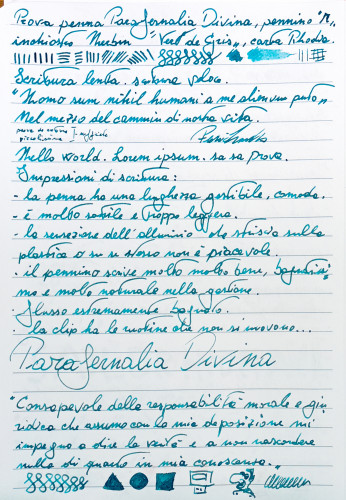 Prova penna Parafernalia Divina, pennino "M",
inchiostro Herbin "Vert de Gris", carta Rhodia.
Scrittura lenta. scrittura veloce.
"Homo sum nihil humani a me alienum puto"
Nel mezzo del cammin di nostra vita
prova di scrittura
piccolissima
Hello World. Lorem ipsum. sa sa prova.
Impressioni di scrittura:
- la penna ha una lunghezza gestibile, comoda.
- è molto sottile e troppo leggera.
- la sensazione dell'alluminio che striscia sulla
plastica o su se stesso non è piacevole.
- il pennino scrive molto molto bene, bagnatissi-
mo e molto naturale nella gestione.
- flusso estremamente bagnato.
- la clip ha le rotine che non si muovono...
Parafernalia Divina
"Consapevole della responsabilità morale e giu-
ridica che assumo con la mia deposizione mi
impegno a dire la verità e a non nascondere
nulla di quanto in mia conoscenza."